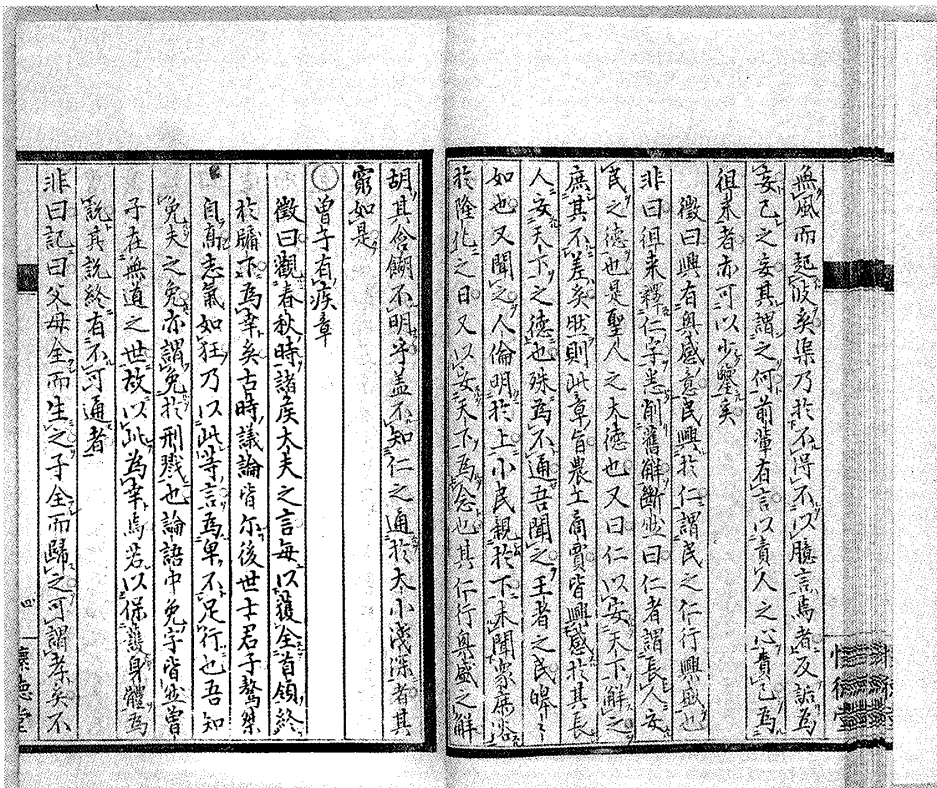 無風而起波矣渠乃於不得不以臆言焉者反詬為
妄己之妄其謂之何前輩有言以責人之心責己為
徂來者亦可以少鑒矣
徵曰興有興盛意民興於仁謂民之仁行興盛也
非曰徂來釋仁字悉削舊解斷然曰仁者謂長人安
民之德也是聖人之大德也又曰仁以安天下解之
庶其不差矣然則此章旨農工商賈皆興感於其長
人安天下之德也殊為不通吾聞之王者之民皞々
如也又聞之人倫明於上小民親於下未聞家庶浴
於隆化之日又以安天下為念也其仁行興盛之解
胡其含餬不明乎盖不知仁之通於大小淺深者其
窮如是
○曾子有疾章
徵曰觀春秋時諸侯大夫之言每以獲全首領終
於牖下為幸矣古時議論皆尔後世士君子驁桀
自高志氣如狂乃以此等言為卑不足行也吾知
免夫之免亦謂免於刑戮也論語中免字皆然曾
子在無道之世故以此為幸焉若以保護身體為
說其說終有不可通者
非曰記曰父母全而生之子全而歸之可謂孝矣不
四
懷德堂